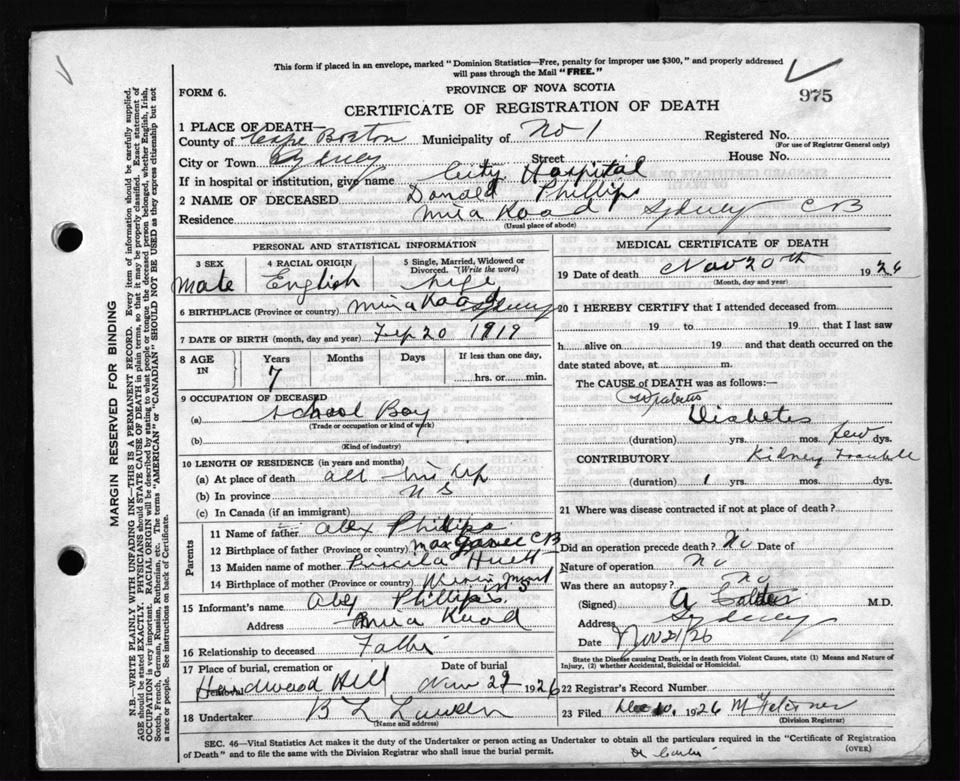 This form if placed in an envelope, marked "Dominion Statistics—Free, penalty for improper use $300," and properly addressed
will pass through the Mail "FREE."
FORM 6.
PROVINCE OF NOVA SCOTIA
975
CERTIFICATE OF REGISTRATION OF DEATH
1 PLACE OF DEATH—
County of Cape Breton Municipality of No 1 Registered No.
(For use of Registrar General only)
City or Town Sydney Street House No.
If in hospital or institution, give name City Hospital
2 NAME OF DECEASED Donald Phillips
Residence Mira Road Sydney CB
(Usual place of abode)
PERSONAL AND STATISTICAL INFORMATION
3 SEX 4 RACIAL ORIGIN 5 Single, Married, Widowed or Divorced. (Write the word)
Male English
6 BIRTHPLACE (Province or country) Mira Road Sydney
7 DATE OF BIRTH (month, day and year) Sep 20 1919
8 AGE IN Years Months Days If less than one day,
7 hrs. or min.
9 OCCUPATION OF DECEASED
(a) School Boy
(Trade or occupation or kind of work)
(b)
(Kind of industry)
10 LENGTH OF RESIDENCE (in years and months)
(a) At place of death all his life
(b) In province N S
(c) In Canada (if an immigrant)
Parents
11 Name of father Alex Phillips
12 Birthplace of father (Province or country) Margaree CB
13 Maiden name of mother Priscila
14 Birthplace of mother (Province or country) N S
15 Informant's name Alex Phillips
Address Mira Road
16 Relationship to deceased Father
17 Place of burial, cremation or removal Date of burial
Hardwood Hill Nov 22 1926
18 Undertaker B L
(Name and address)
MEDICAL CERTIFICATE OF DEATH
19 Date of death Nov 20th 1926
(Month, day and year)
20 I HEREBY CERTIFY that I attended deceased from
19 to 19 that I last saw
h alive on 19 and that death occurred on the
date stated above, at m.
The CAUSE OF DEATH was as follows:—
Diabetis
Diabetes
(duration) yrs. mos. few dys.
CONTRIBUTORY Kidney Trouble
(duration) 1 yrs. mos. dys.
21 Where was disease contracted if not at place of death?
Did an operation precede death? No Date of
Nature of operation no
Was there an autopsy? no
(Signed) A Calder M.D.
Address Sydney
Date Nov 21/26
State the Disease causing Death, or in death from Violent Causes, state (1) Means and Nature of
Injury, (2) whether Accidental, Suicidal or Homicidal.
22 Registrar's Record Number
23 Filed Dec 10, 1926
(Division Registrar)
SEC. 46—Vital Statistics Act makes it the duty of the Undertaker or person acting as Undertaker to obtain all the particulars required in the "Certificate of Registration
of Death" and to file the same with the Division Registrar who shall issue the burial permit.
(OVER)
MARGIN RESERVED FOR BINDING
N.B.—WRITE PLAINLY WITH UNFADING INK—THIS IS A PERMANENT RECORD. Every item of information should be carefully supplied.
AGE should be stated EXACTLY. PHYSICIANS should STATE CAUSE OF DEATH in plain terms, so that it may be properly classified. Exact statement of
OCCUPATION is very important. RACIAL ORIGIN will be described by stating to what people or tongue the deceased person belonged, whether English, Irish,
Scotch, French, German, Russian, Ruthenian, etc. The terms "AMERICAN" or "CANADIAN" SHOULD NOT BE USED as they express citizenship but not
a race or people. See instructions on back of Certificate.